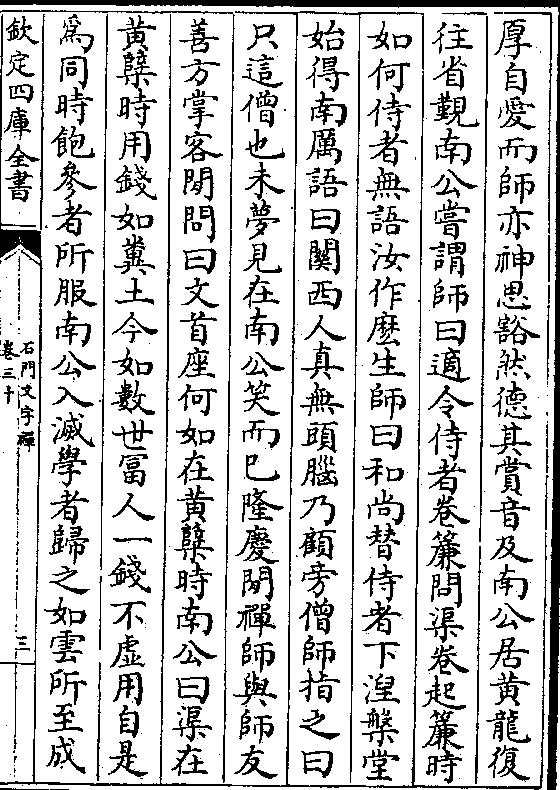 厚自愛而師亦神思豁然德其賞音及南公居黃龍復
往省觀南公嘗謂師曰適令侍者卷簾問渠卷起簾時
如何侍者無語汝作麽生師曰和尚替侍者下涅槃堂
始得南厲語曰關西人真無頭腦乃顧旁僧師指之曰
只這僧也未夢見在南公笑而已隆慶閑禪師與師友
善方掌客閑問曰文首座何如在黃檗時南公曰渠在
黃檗時用錢如糞土今如數世富人一錢不虛用自是
爲同時飽參者所服南公入滅學者歸之如雲所至成
欽定四庫全書
石門文字禪
卷三十
三